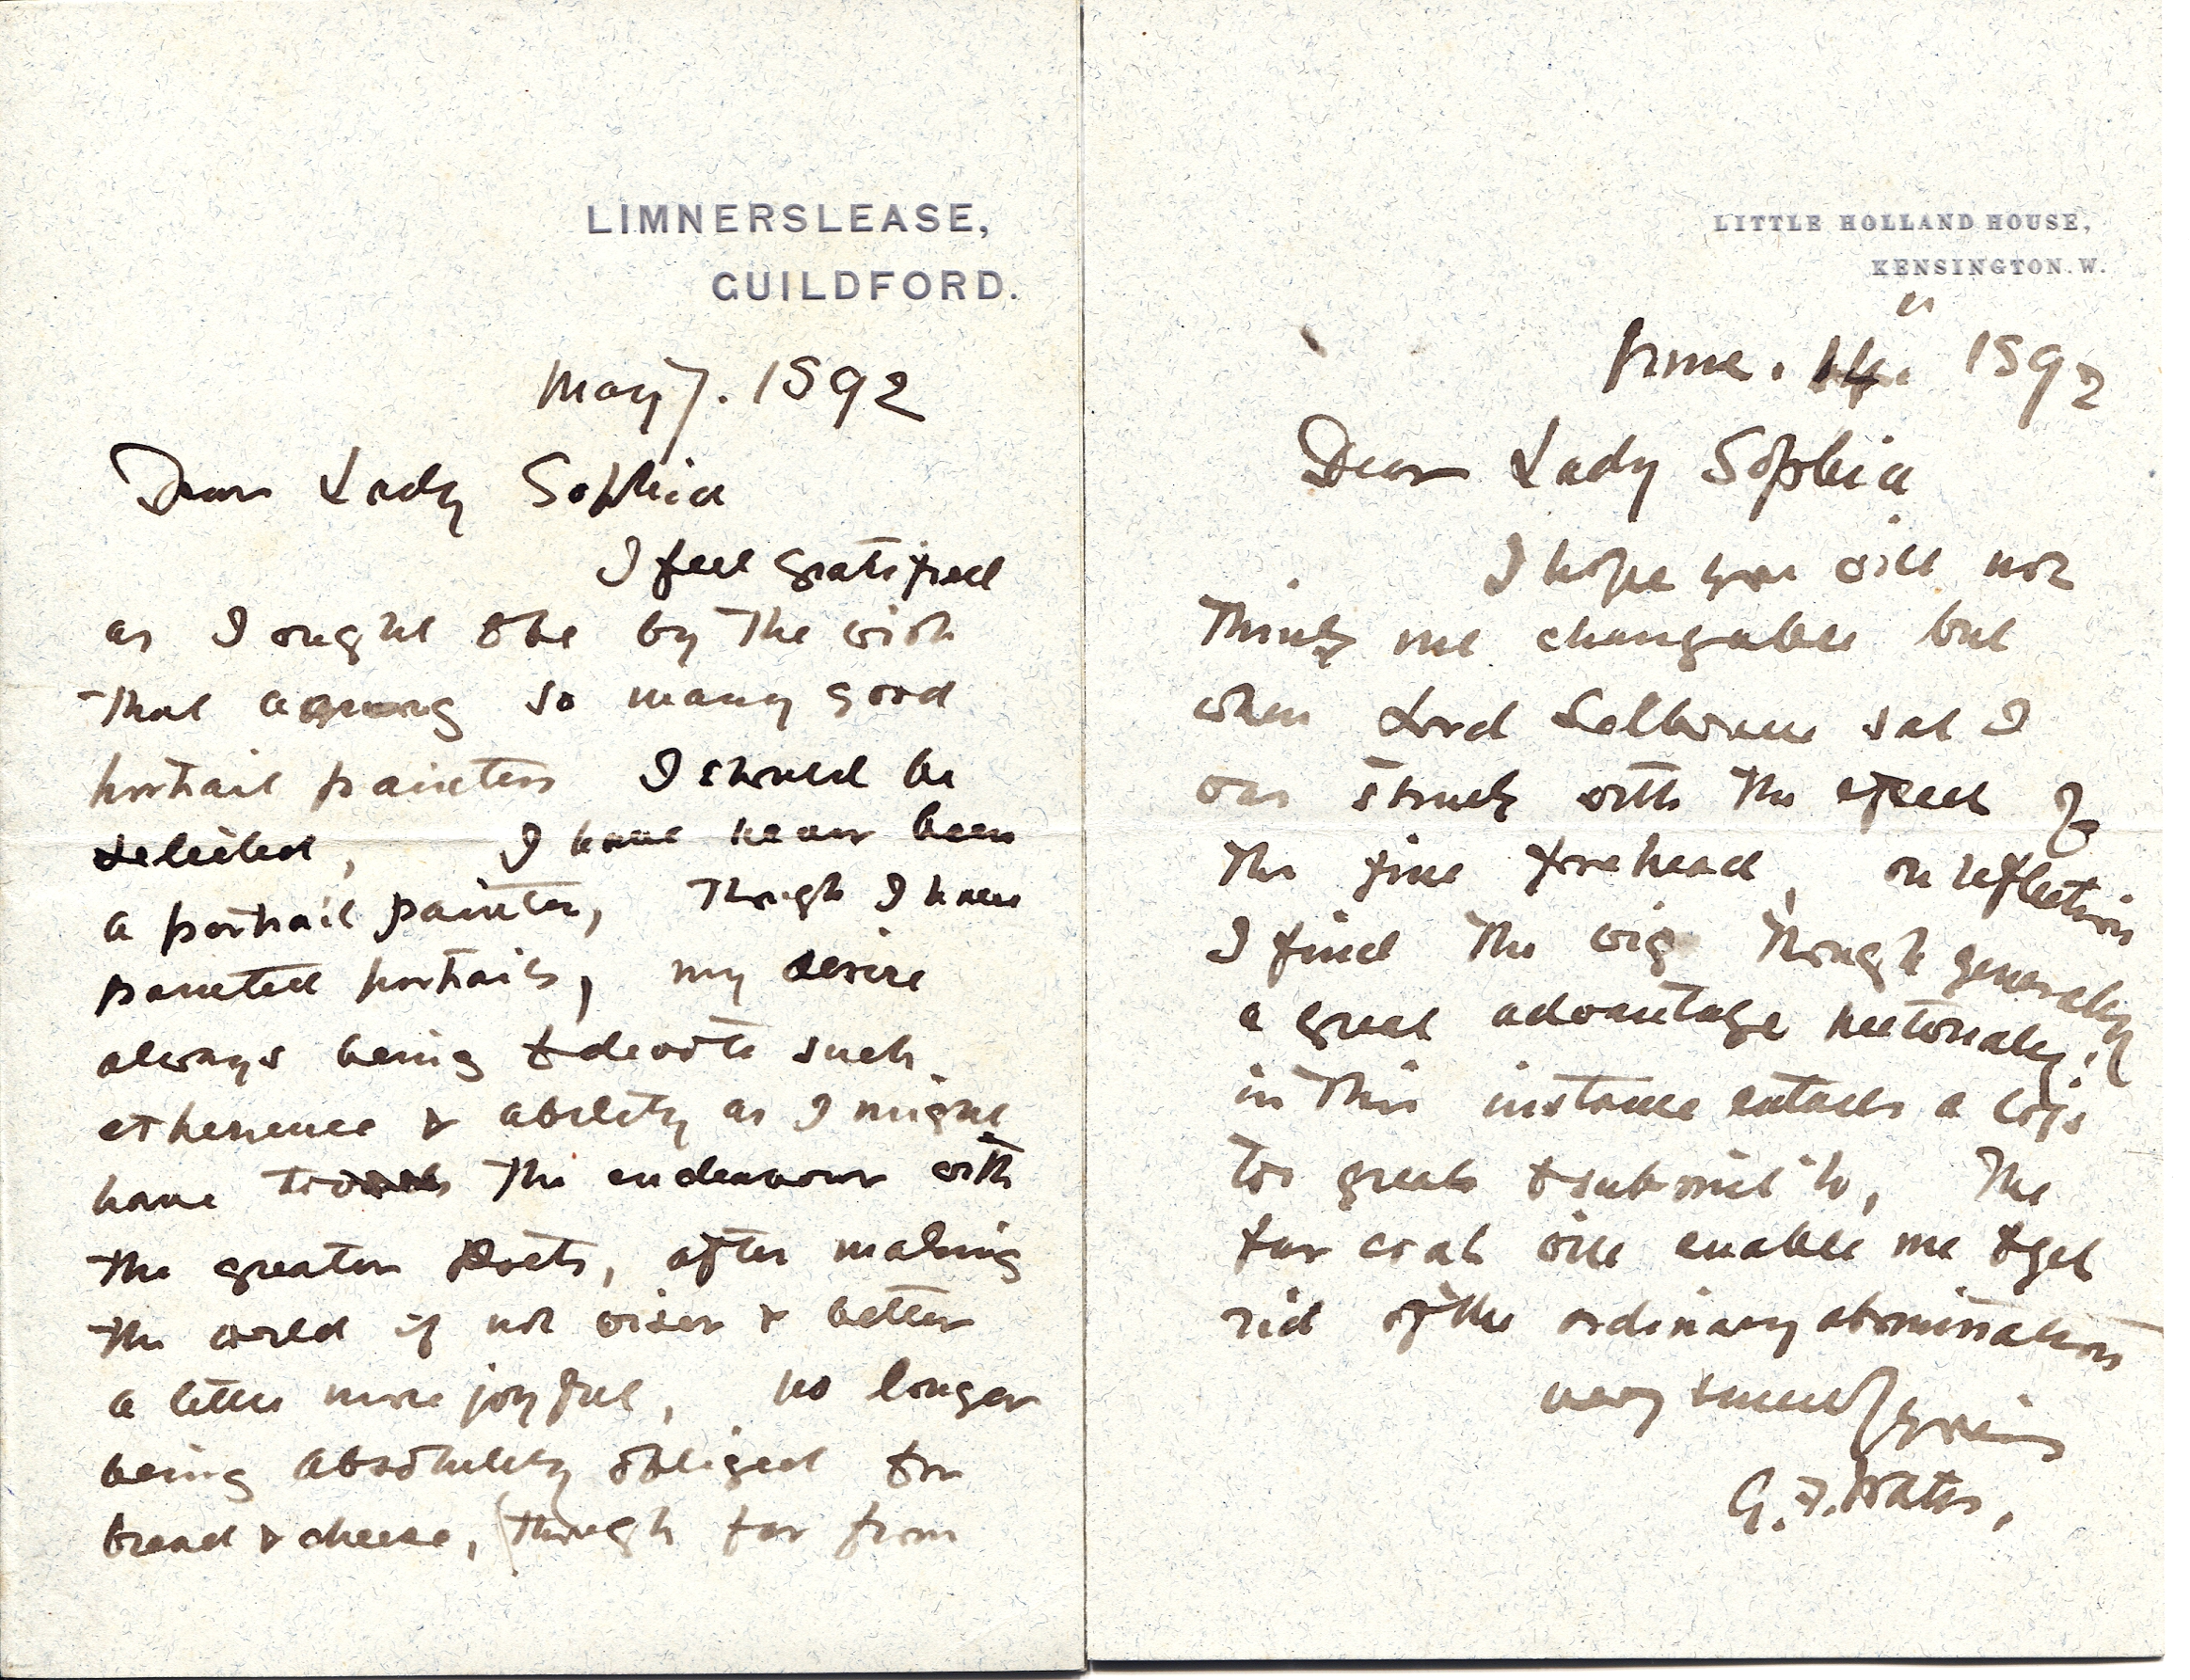 LIMNERSLEASE,
GUILDFORD.
May 7. 1892
Dear Lady Sophia
I feel gratified
as I ought to be by the wish
that among so many good
portrait painters I should be
selected, I have never been
a portrait painter, though I have
painted portraits, my desire
always being to devote such
experience & ability as I might
have towards the endeavour with
the greater Poets, after making
the world if not wiser & better
a little more joyful, no longer
being absolutely obliged for
bread & cheese, (though far from
LITTLE HOLLAND HOUSE,
KENSINGTON. W.
June. 14. 1892
Dear Lady Sophia
I hope you will not
think me changable but
when Lord Selborne sat I
was struck with the effect of
the fine forehead, on reflection
I find the wig though generally
a great advantage pictorialy,
in this instance entails a loss
too great to submit to, The
fur coat will enable me to get
rid of the ordinary abominations
very sincerely yours
G. F. Watts,